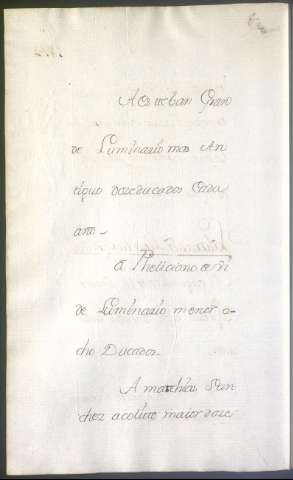 A Esteban Gran
de Luminario mas An
tiguo doze ducados Cada
ano -
A Pheliciano
de Luminario menor o-
cho Ducados.
A mathias San
chez acolito maior doze